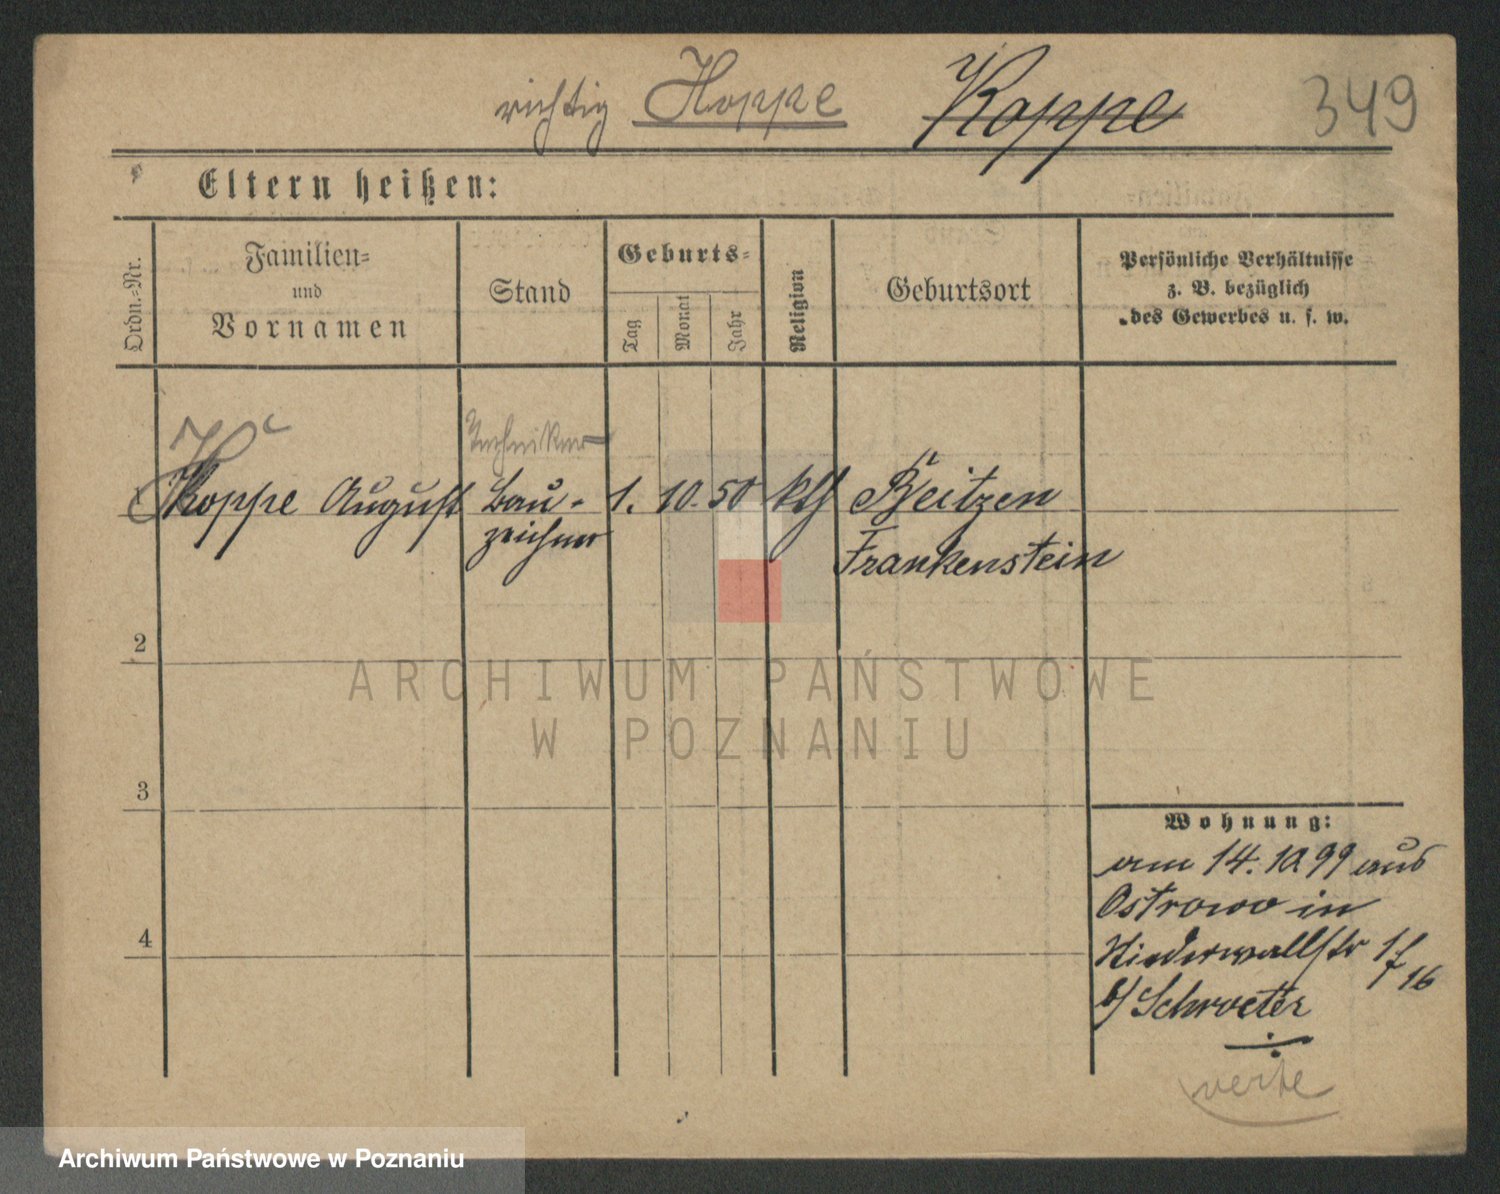 richtig Hoppe Koppe 349
Eltern heißen:
Ordn.-Nr.
Familien-
und
Vornamen
Stand
Geburts-
Tag
Monat
Jahr
Religion
Geburtsort
Persönliche Verhältnisse
z. B. bezüglich
des Gewerbes u. s. w.
Techniker
Hoppe August Bau- 1. 10. 50 kth Beitzen
zeichner Frankenstein
2
3
4
Wohnung:
am 14. 10 99 aus
Ostrowo in
Niederwallstr
16
b/ Schroeter
verte
ARCHIWUM PAŃSTWOWE
W POZNANIU
Archiwum Państwowe w Poznaniu